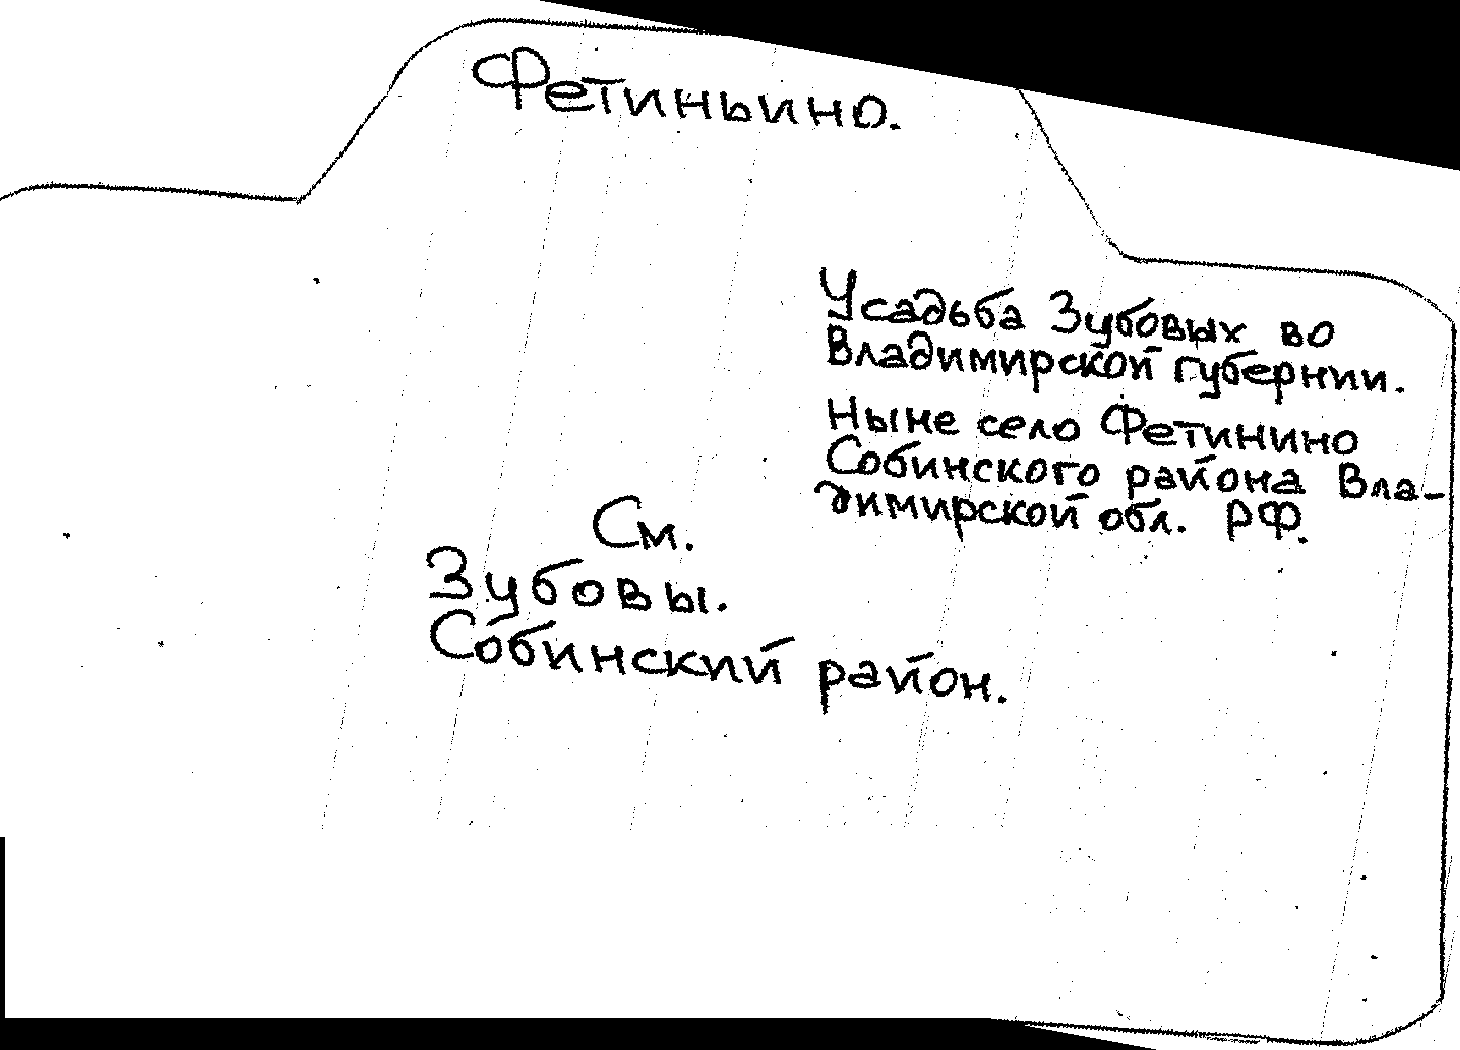 Фетиньино.
Усадьба Зубовых во
Владимирской губернии.
Ныне село Фетинино
Собинского района Вла-
димирской обл. РФ.
См.
Зубовы.
Собинский район.